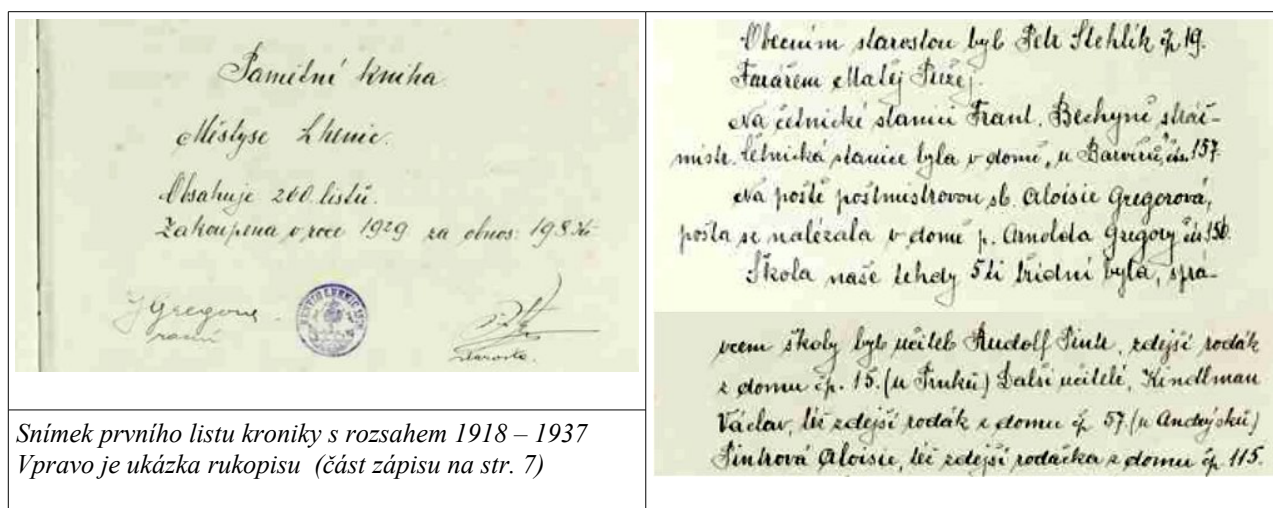 Pamětní kniha
Městyse Lhenic.
Obsahuje 200 listů.
Zakoupena v roce 1929 za obnos: 198 Kč
J Gregora
radní
starosta.
Snímek prvního listu kroniky s rozsahem 1918 – 1937
Vpravo je ukázka rukopisu (část zápisu na str. 7)
Obecním starostou byl Petr Stehlík čp 19.
Farářem Matěj
Na četnické stanici Frant. Bechyně stráž-
mistr. Četnická stanice byla v domě, u Barvířů, čís. 157.
Na poště poštmistrovou sl. Aloisie Gregorová,
pošta se nalézala v domě p. Arnolda Gregory čís 150.
Škola naše tehdy 5ti třídní byla, sprá-
vcem školy byl učitel Rudolf zdejší rodák
z domu čp. 15. (u ) Další učitelé, Kindlman
Václav, též zdejší rodák z domu čp 57. (u Andrýsků)
Aloisie, též zdejší rodačka z domu čp 115.